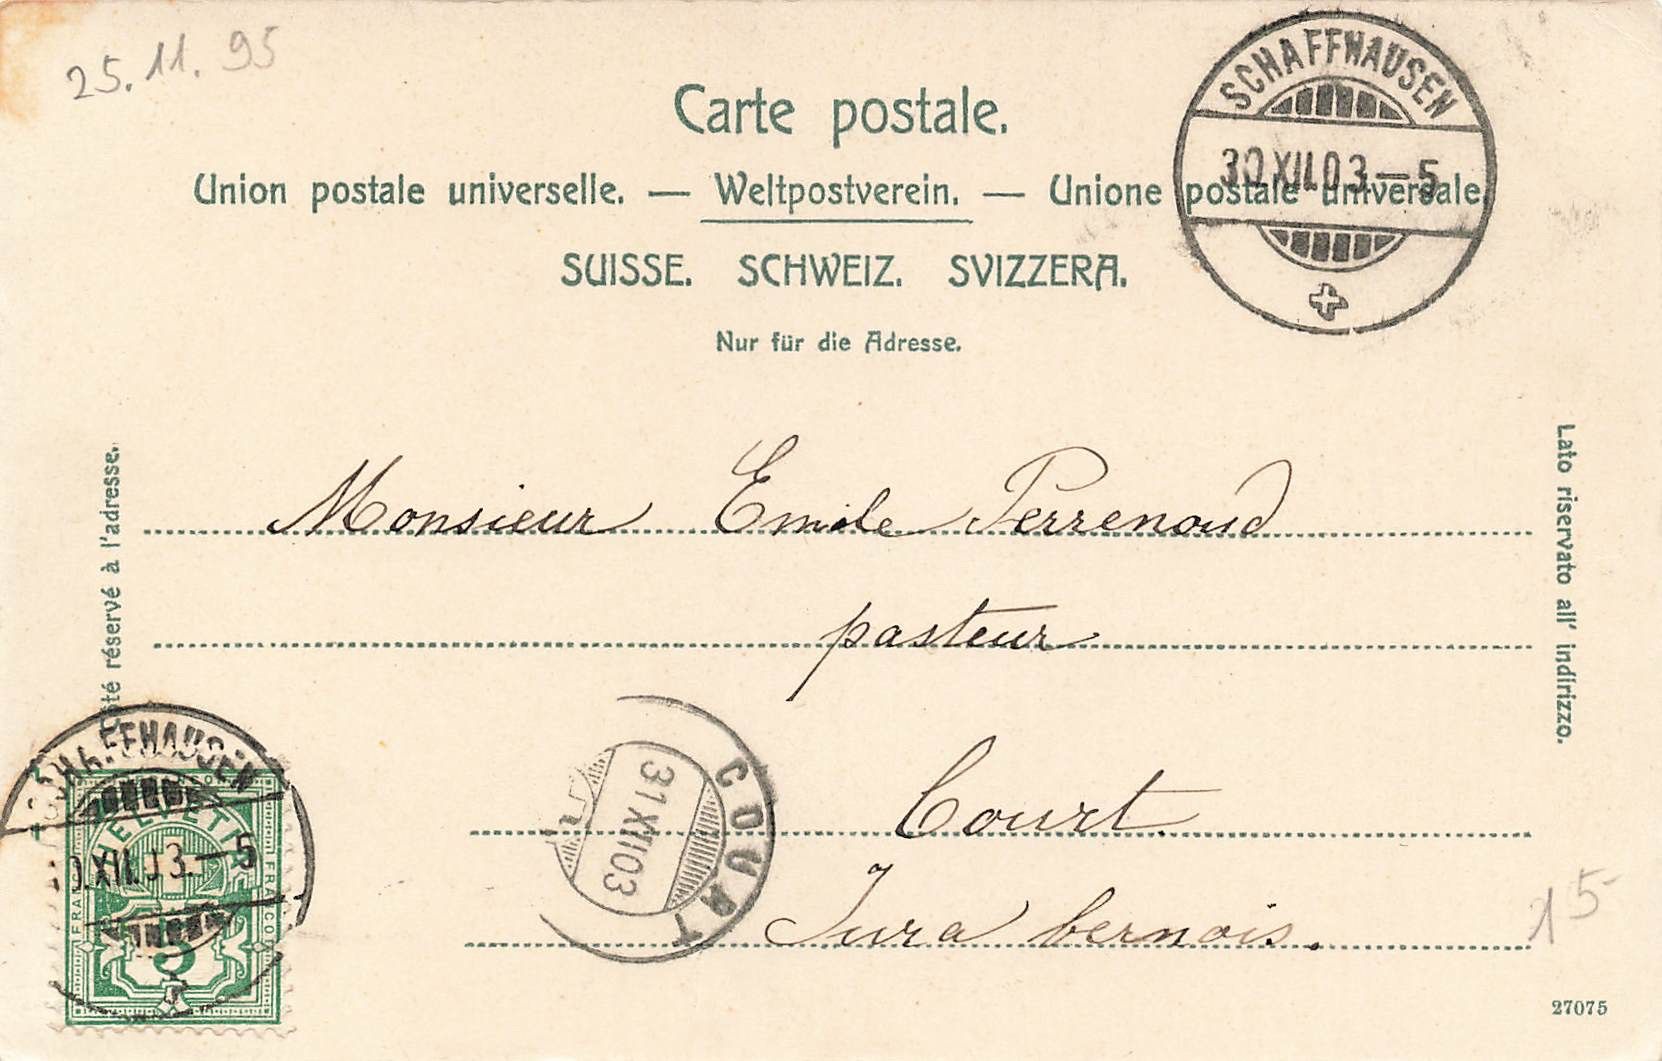 25.11.95
Carte postale.
Union postale universelle. — Weltpostverein. — Unione postale universale.
SUISSE. SCHWEIZ. SVIZZERA.
Nur für die Adresse.
SCHAFFHAUSEN
30.XII.03–5
Côté réservé à l'adresse.
Lato riservato all' indirizzo.
Monsieur Emile Perrenoud
pasteur
Court.
Jura bernois.
COURT
31 XII 03
SCHAFFHAUSEN
0.XII.03.–5
HELVETIA
FRANCO
FRANCO
5
15
27075